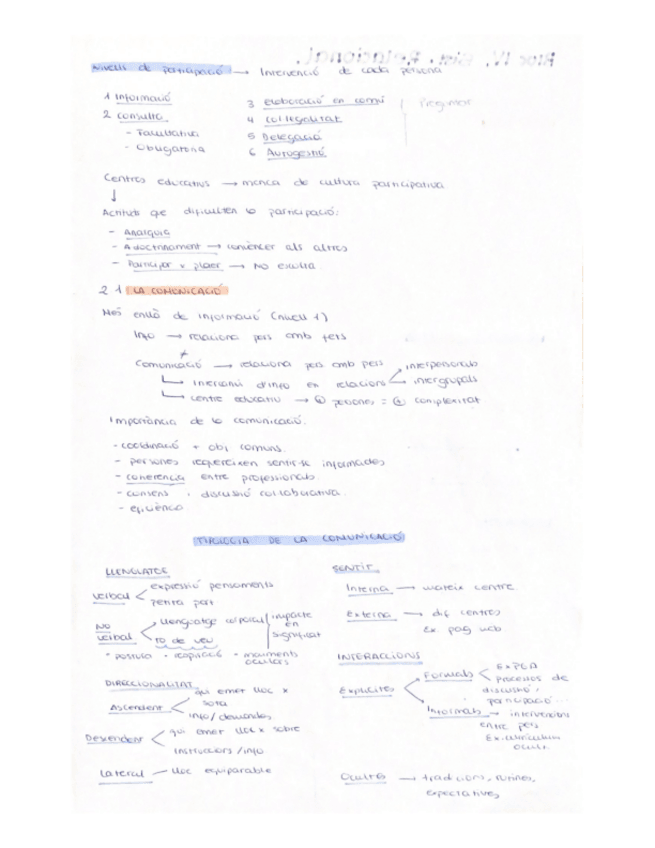 Nivells de participació → Intervenció de cada persona
1 Informació
2 Consulta
- Facultativa
- Obligatòria
3 Elaboració en comú
4 Col·legialitat
5 Delegació
6 Autogestió
Centres educatius → manca de cultura participativa
↓
Actituds que dificulten la participació:
- Analgúia
- Adoctrinament → convèncer als altres
- Participar x plaer → No escolta
2.1 LA COMUNICACIÓ
Més enllà de informació (nivell 1)
Info → relaciona pers amb fets
≠
Comunicació → relaciona pers amb pers
interpersonals
intergrupals
intercanvi d'info en relacions
centre educatiu → ⊕ persones = ⊕ complexitat
Importància de la comunicació:
- coordinació + obj comuns.
- persones requereixen sentir-se informades
- coherència entre professionals
- consens . discussió col·laborativa.
- eficiència
TIPOLOGIA DE LA COMUNICACIÓ
LLENGUATGE
Verbal
expressió pensaments
petita part
No verbal
Llenguatge corporal
to de veu
impacte en significat
- postura - respiració - moviments oculars
DIRECCIONALITAT
Ascendent
qui emet lloc x sota
info/demandes
Descendent
qui emet lloc x sobre
instruccions/info
Lateral — lloc equiparable
SENTIT
Interna → mateix centre
Externa → dif centres
Ex. pag web
INTERACCIONS
Explícites
Formals
processos de
discussió,
participació...
Informals → intervencions
entre pers
Ex. currículum
ocult.
Ocultes → tradicions, rutines,
expectatives